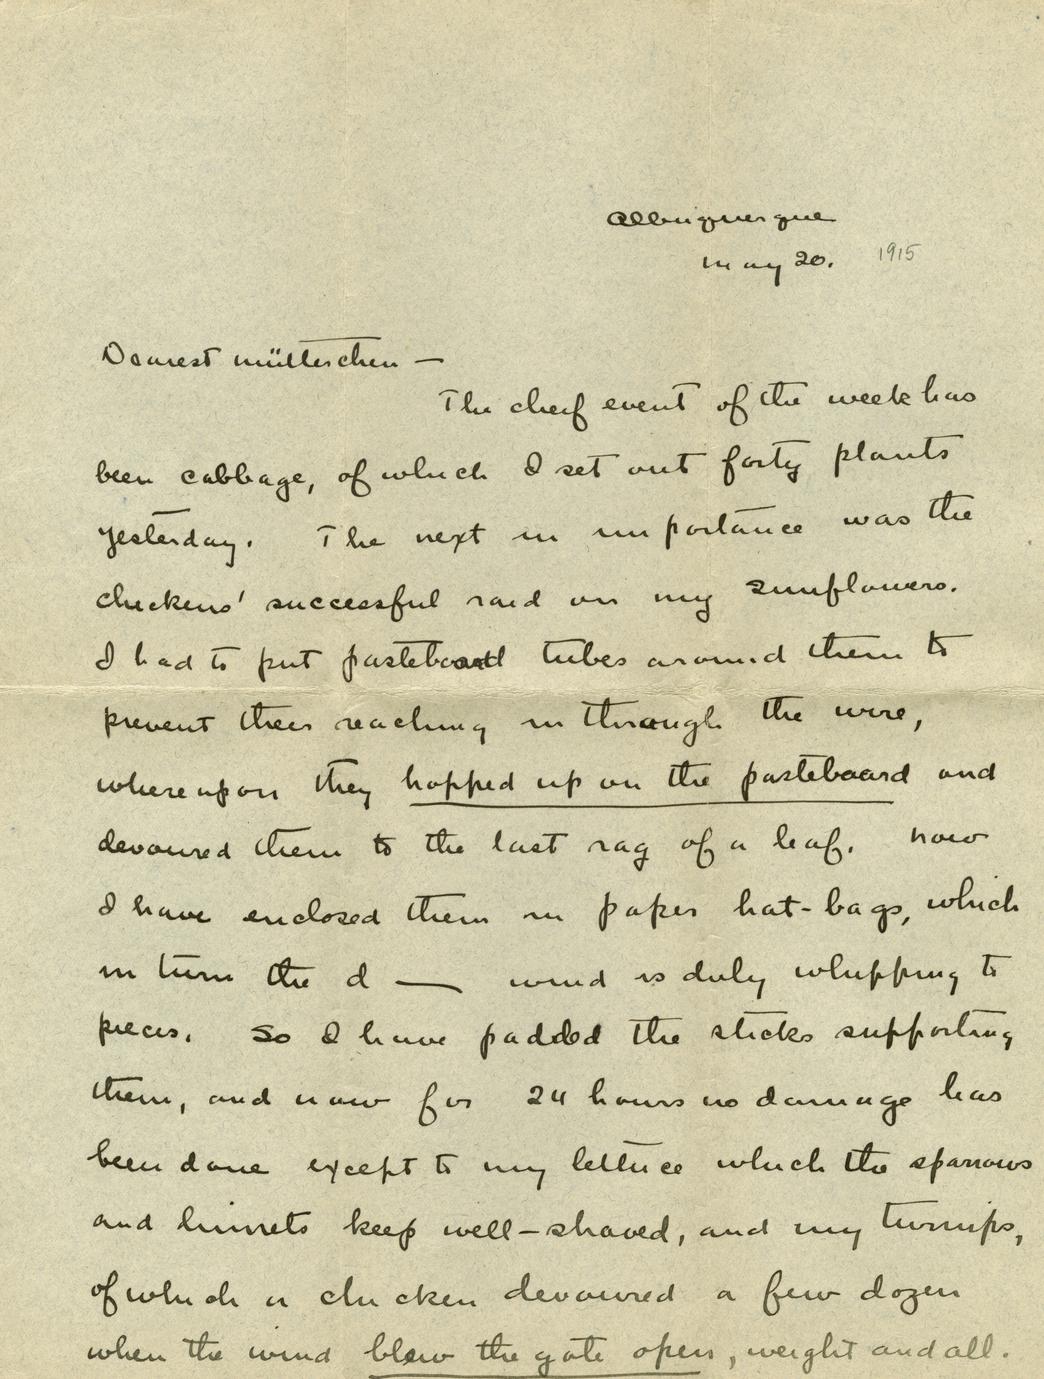 Albuquerque
May 20. 1915
Dearest mütterchen —
The cheif event of the week has
been cabbage, of which I set out forty plants
yesterday. The next in importance was the
chickens' successful raid on my sunflowers.
I had to put pasteboard tubes around them to
prevent their reaching in through the wire,
whereupon they hopped up on the pasteboard and
devoured them to the last rag of a leaf. Now
I have enclosed them in paper hat-bags, which
in turn the d — wind is duly whipping to
pieces. So I have padded the sticks supporting
them, and now for 24 hours no damage has
been done except to my lettuce which the sparrows
and linnets keep well-shaved, and my turnips,
of which a chicken devoured a few dozen
when the wind blew the gate open, weight and all.